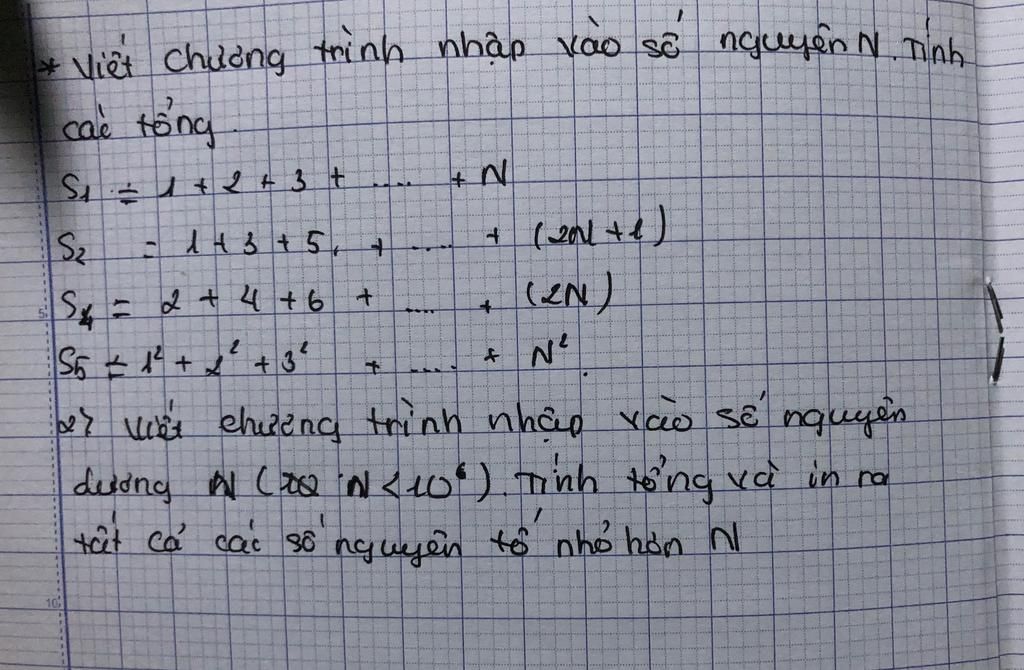 * Viết chương trình nhập vào số nguyên N. Tính
các tổng.
S1 = 1 + 2 + 3 + .... + N
S2 = 1 + 3 + 5 + .... + (2N + 1)
S4 = 2 + 4 + 6 + .... + (2N)
S5 = 1² + 2² + 3² + .... + N².
2) Viết chương trình nhập vào số nguyên
dương N ( N < 10⁶). Tính tổng và in ra
tất cả các số nguyên tố nhỏ hơn N
5
10